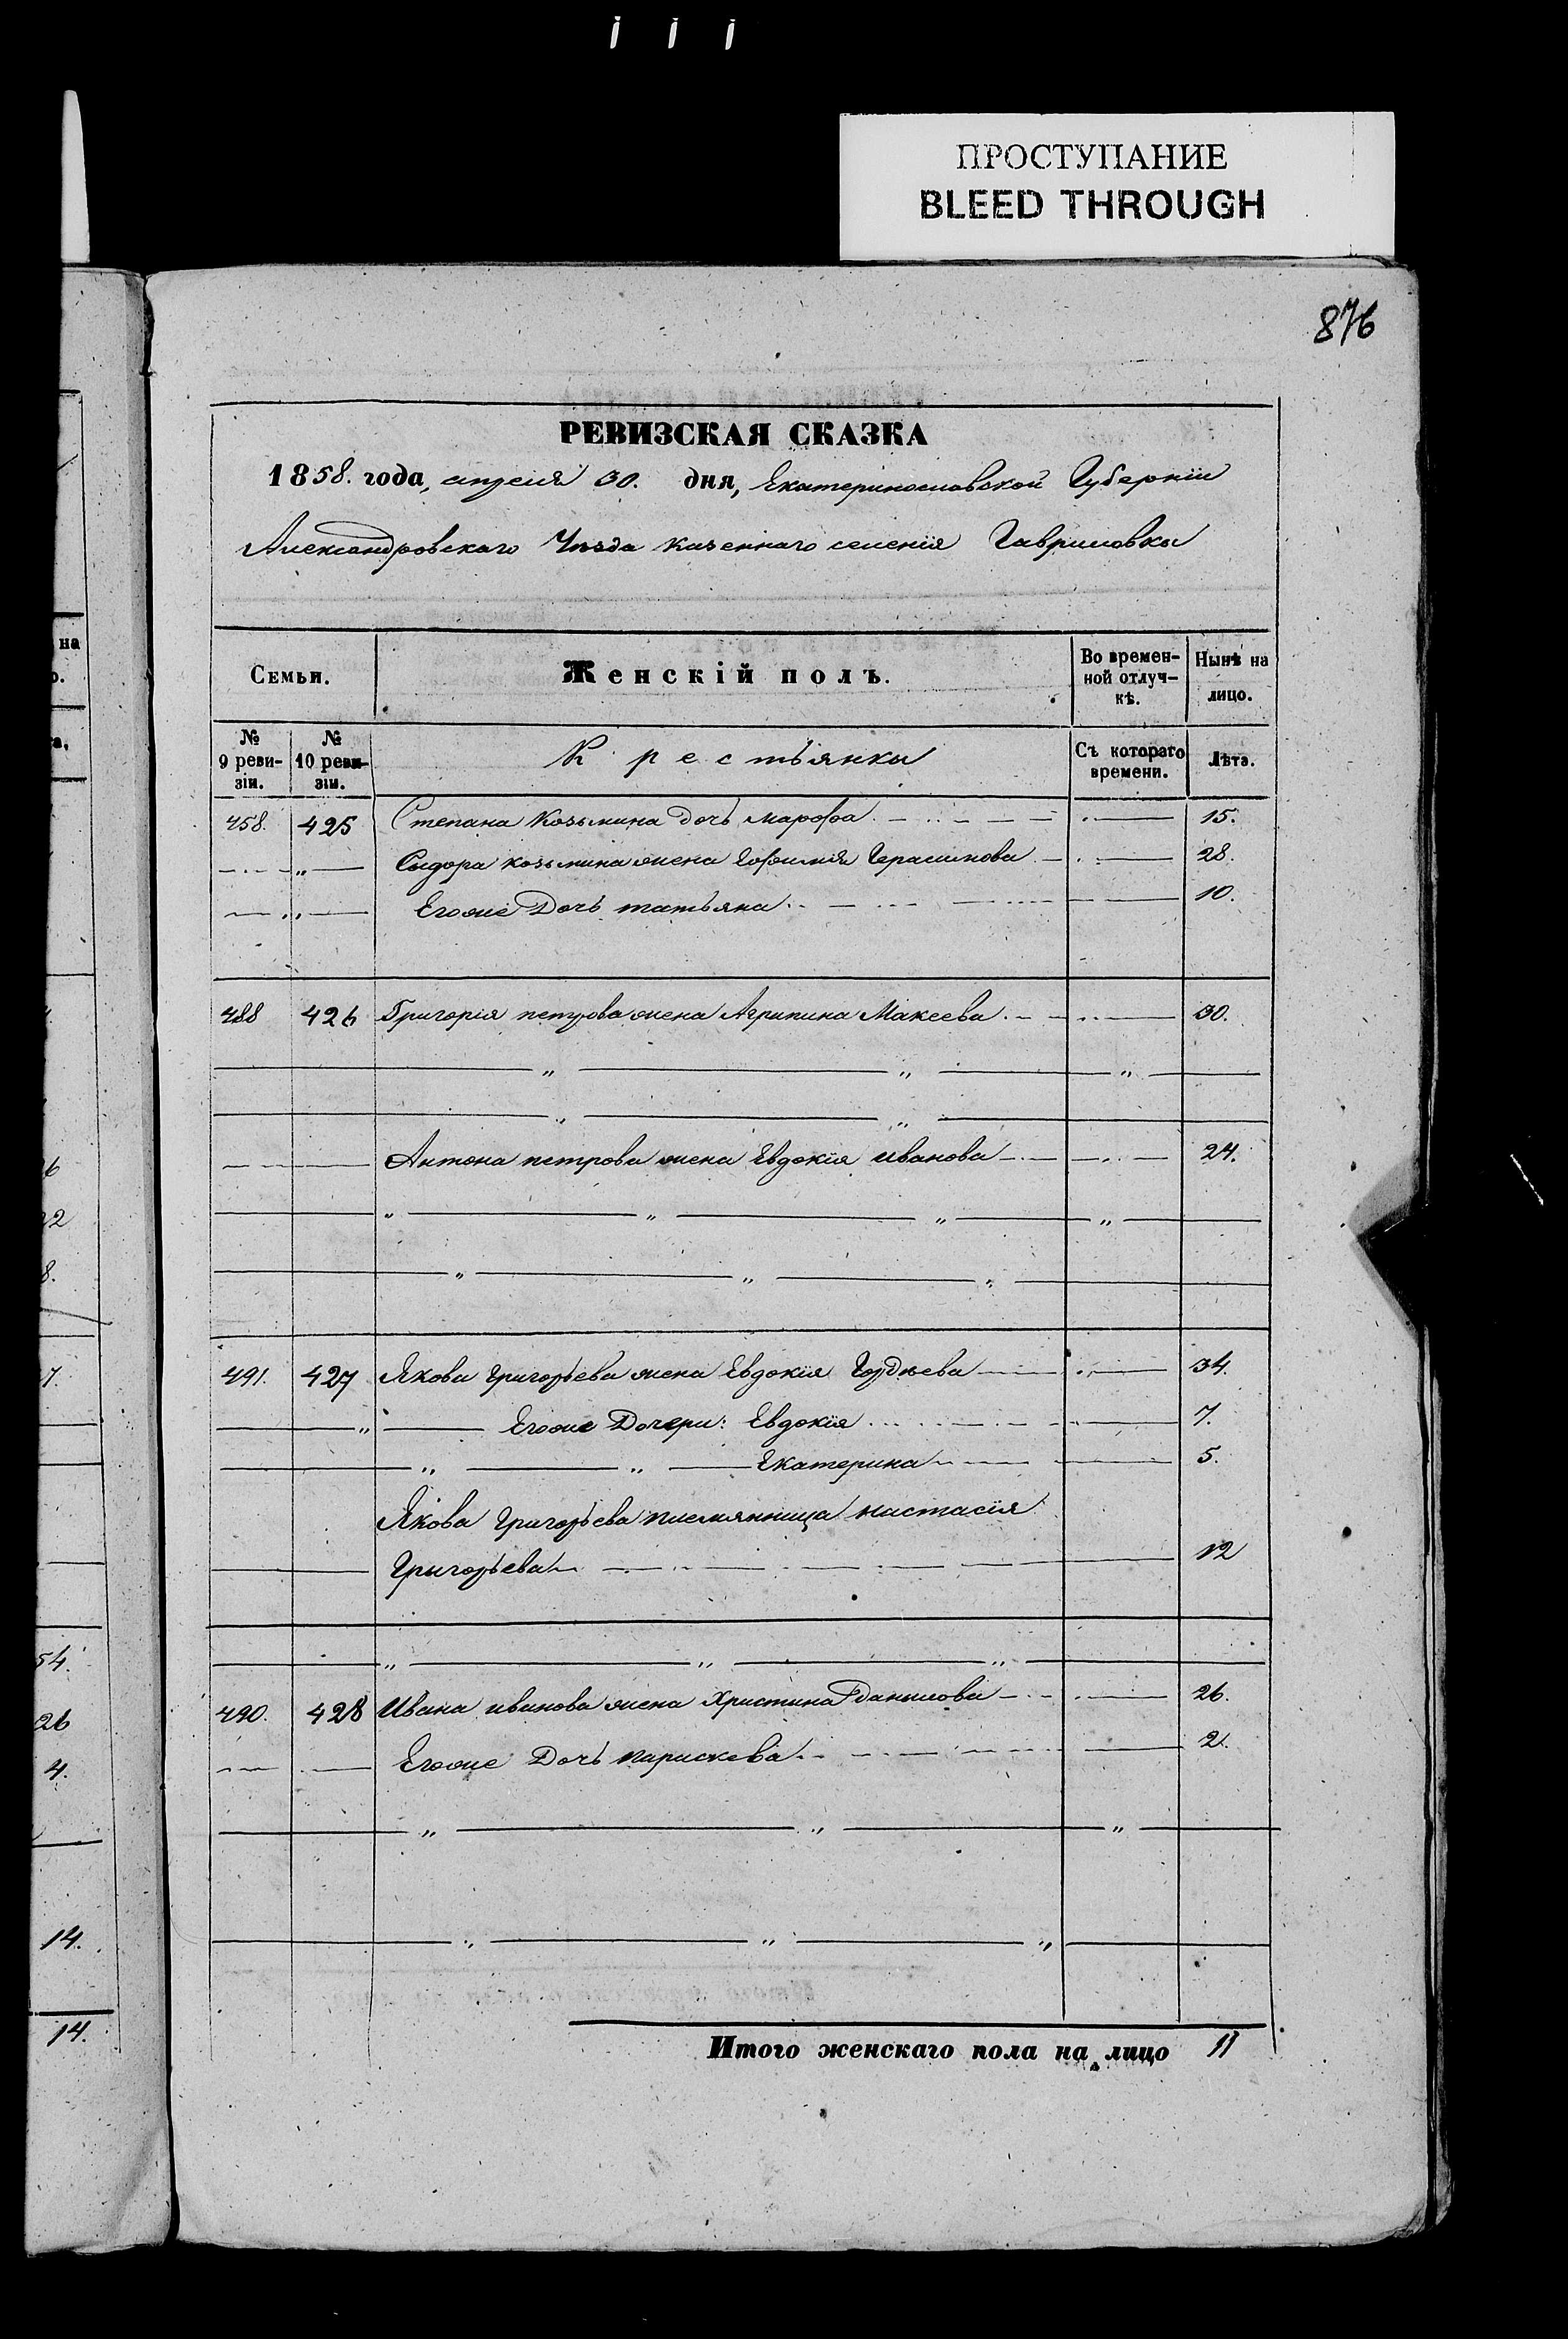 ПРОСТУПАНИЕ
BLEED THROUGH
876
РЕВИЗСКАЯ СКАЗКА
1858. года, апреля 30. дня, Екатеринославской Губернïи
Александровскаго Уѣзда казеннаго селенïя Гавриловки
на
Семьи. Женскій полъ. Во времен- Нынѣ на
ной отлуч- лицо.
кѣ.
№ № Крестьянки Съ котораго Лѣта.
9 реви- 10 реви- времени.
зіи. зіи.
458. 425 Степана Козьмина дочь марѳа 15.
Сидора козьмина жена Ефимiя Герасимова 28.
Егоже Дочь татьяна 10.
488 426 Григорiя петрова жена Агрипина Макеева 30.
Антона петрова жена Евдокïя иванова 24.
491. 427 Якова григорьева жена Евдокïя Гордѣева 34.
Егоже Дочери: Евдокïя 7.
Екатерина 5.
Якова григорьева племянница настасïя
Григорьева 12
490. 428 Ивана иванова жена Христина Данилова 26.
Егоже Дочь параскева 2.
Итого женскаго пола на лицо 11
22
8.
7.
54.
26
4.
14.
14.